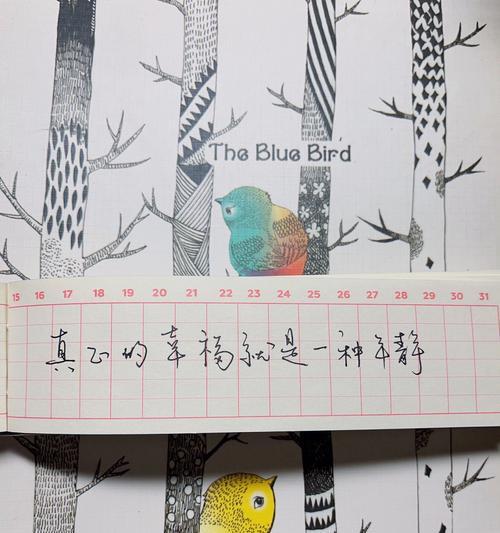 The Blue Bird
15 16 17 18 19 20 21 22 23 24 25 26 27 28 29 30 31
真正的幸福就是一种静